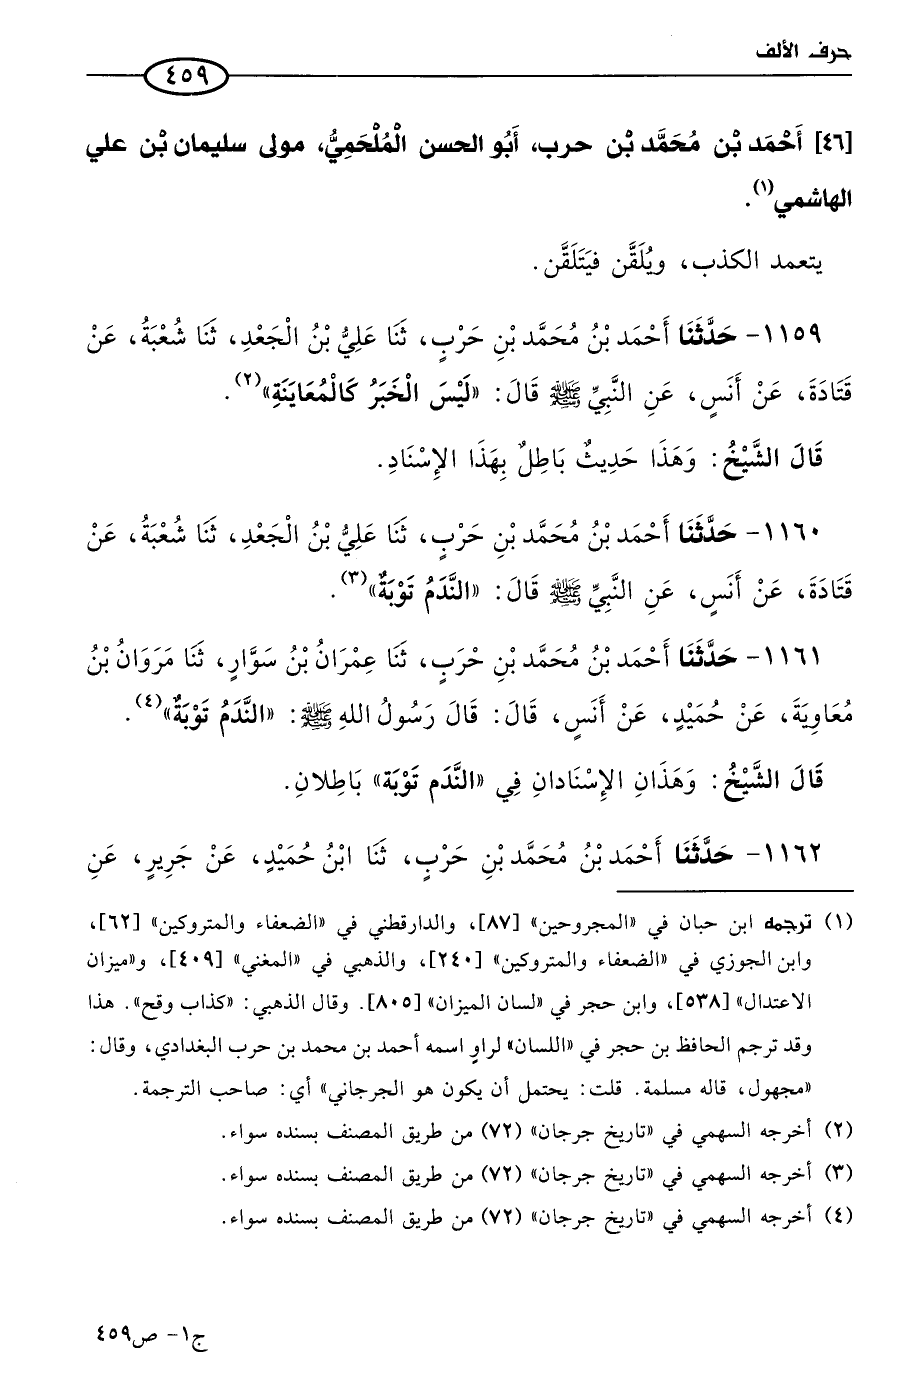 حرف الألف
٤٥٩
[٤٦] أَحْمَد بْن مُحَمَّد بْن حرب، أَبُو الحسن الْمُلْحَمِيُّ، مولى سليمان بْن علي
الهاشمي(١).
يتعمد الكذب، ويُلَقَّن فيَتَلَقَّن.
١١٥٩- حَدَّثَنَا أَحْمَد بْنُ مُحَمَّد بْنِ حَرْبٍ، ثَنَا عَلِيُّ بْنُ الْجَعْدِ، ثَنَا شُعْبَةُ، عَنْ
قَتَادَةَ، عَنْ أَنَسٍ، عَنِ النَّبِيِّ ﷺ قَالَ: «لَيْسَ الْخَبَرُ كَالْمُعَايَنَةِ»(٢).
قَالَ الشَّيْخُ: وَهَذَا حَدِيثٌ بَاطِلٌ بِهَذَا الإِسْنَادِ.
١١٦٠- حَدَّثَنَا أَحْمَد بْنُ مُحَمَّد بْنِ حَرْبٍ، ثَنَا عَلِيُّ بْنُ الْجَعْدِ، ثَنَا شُعْبَةُ، عَنْ
قَتَادَةَ، عَنْ أَنَسٍ، عَنِ النَّبِيِّ ﷺ قَالَ: «النَّدَمُ تَوْبَةٌ»(٣).
١١٦١- حَدَّثَنَا أَحْمَد بْنُ مُحَمَّد بْنِ حْرَبٍ، ثَنَا عِمْرَانُ بْنُ سَوَّارٍ، ثَنَا مَرَوَانُ بْنُ
مُعَاوِيَةَ، عَنْ حُمَيْدٍ، عَنْ أَنَسٍ، قَالَ: قَالَ رَسُولُ اللهِ ﷺ: «النَّدَمُ تَوْبَةٌ»(٤).
قَالَ الشَّيْخُ: وَهَذَانِ الإِسْنَادانِ فِي «النَّدَم تَوْبَة» بَاطِلانِ.
١١٦٢- حَدَّثَنَا أَحْمَد بْنُ مُحَمَّد بْنِ حَرْبٍ، ثَنَا ابْنُ حُمَيْدٍ، عَنْ جَرِيرٍ، عَنِ
(١) ترجمه ابن حبان في «المجروحين» [٨٧]، والدارقطني في «الضعفاء والمتروكين» [٦٢]،
وابن الجوزي في «الضعفاء والمتروكين» [٢٤٠]، والذهبي في «المغني» [٤٠٩]، و«ميزان
الاعتدال» [٥٣٨]، وابن حجر في «لسان الميزان» [٨٠٥]. وقال الذهبي: «كذاب وقح». هذا
وقد ترجم الحافظ بن حجر في «اللسان» لراوٍ اسمه أحمد بن محمد بن حرب البغدادي، وقال:
«مجهول، قاله مسلمة. قلت: يحتمل أن يكون هو الجرجاني» أي: صاحب الترجمة.
(٢) أخرجه السهمي في «تاريخ جرجان» (٧٢) من طريق المصنف بسنده سواء.
(٣) أخرجه السهمي في «تاريخ جرجان» (٧٢) من طريق المصنف بسنده سواء.
(٤) أخرجه السهمي في «تاريخ جرجان» (٧٢) من طريق المصنف بسنده سواء.
ج١- ص٤٥٩